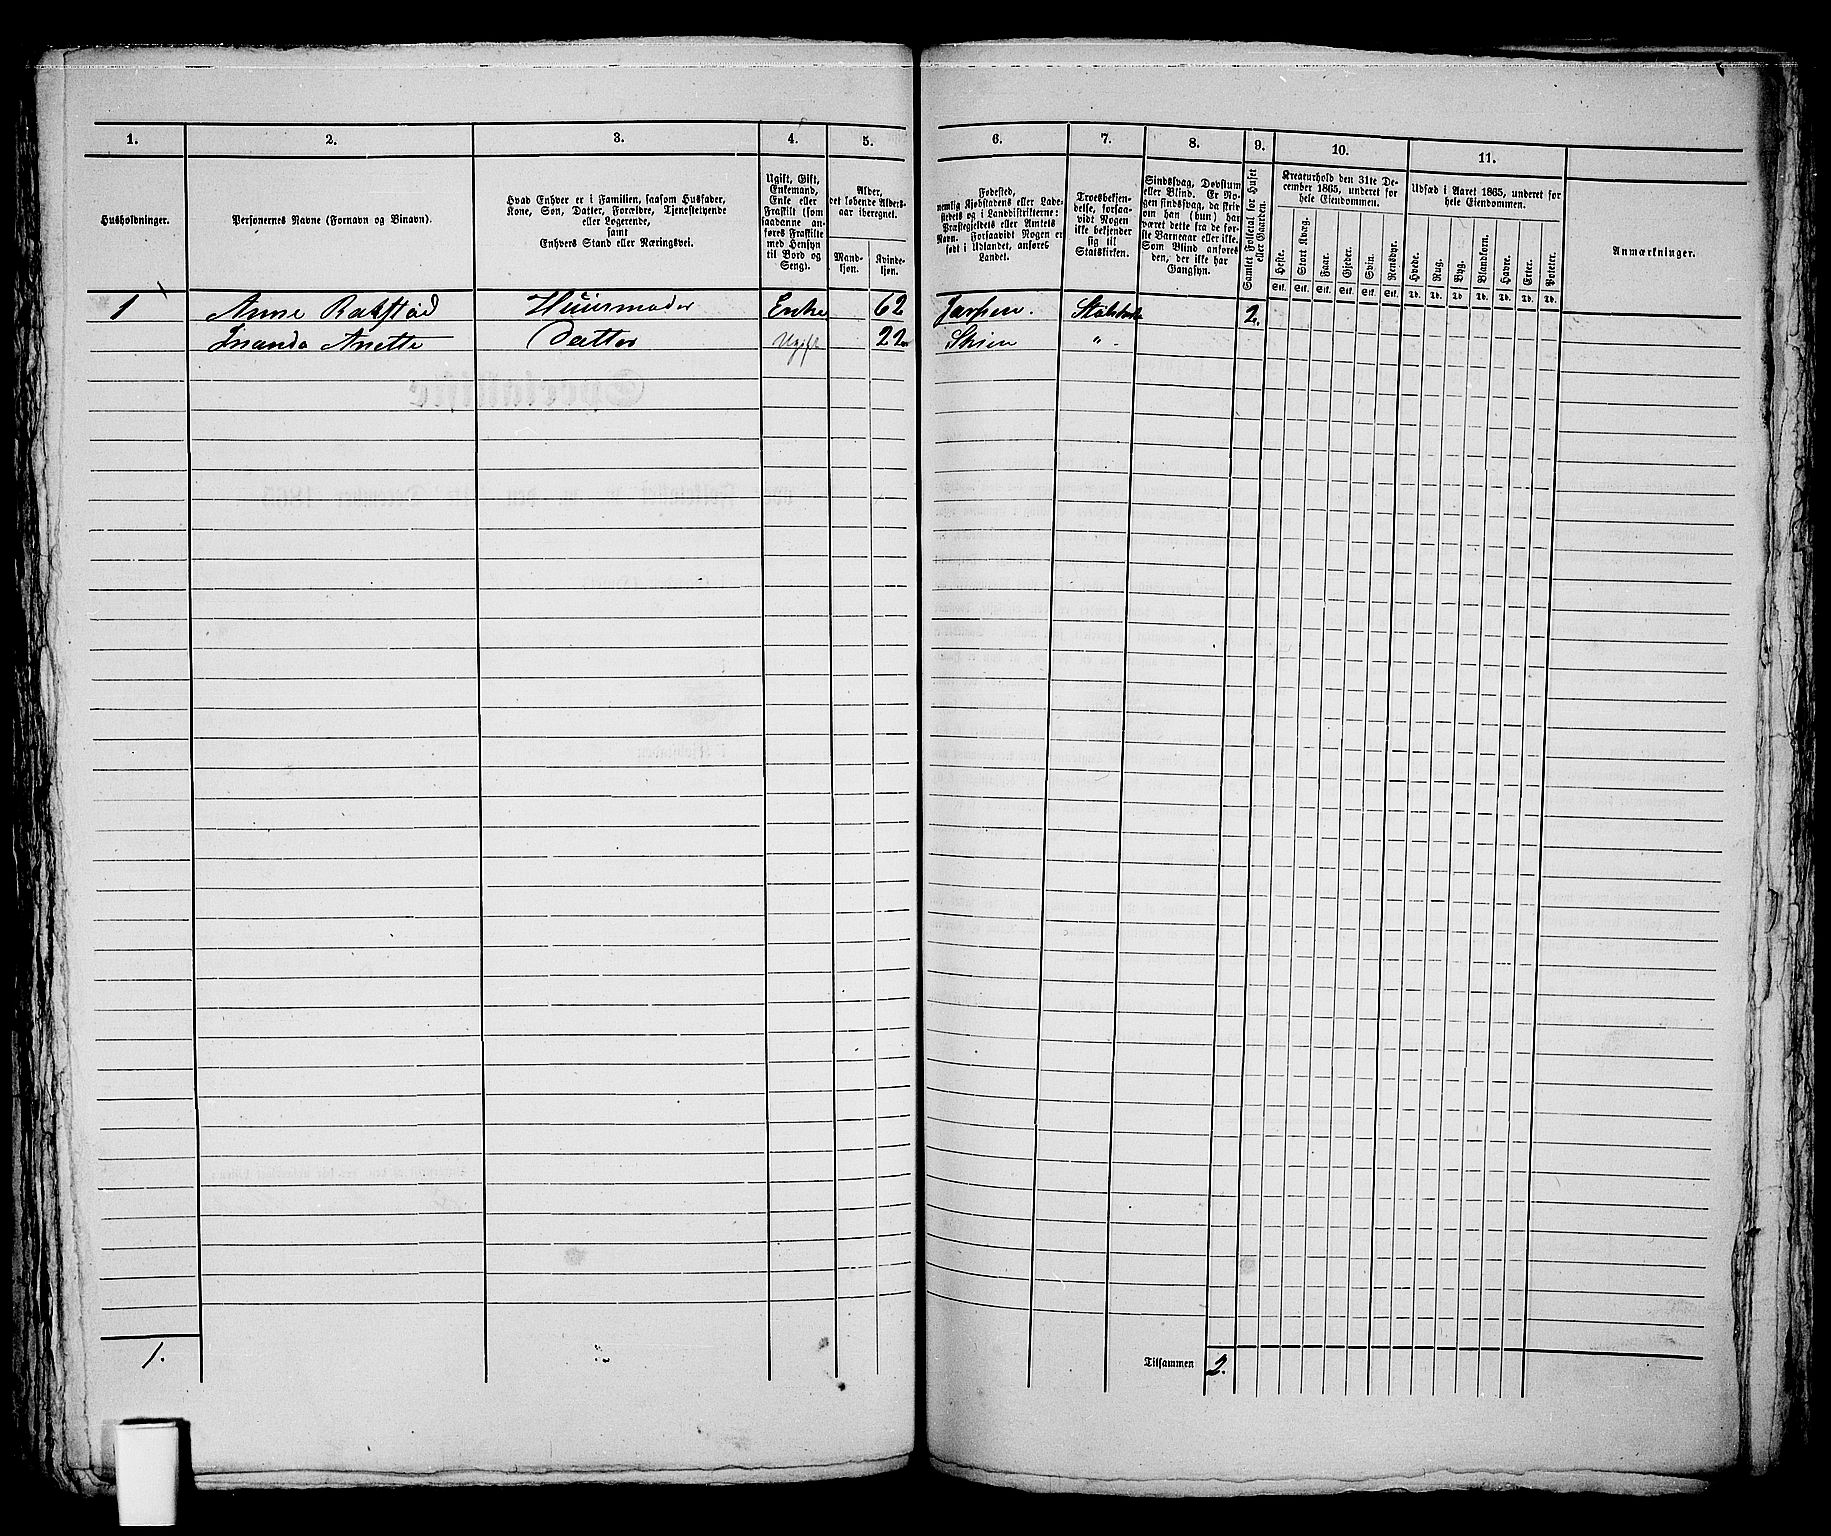 1. 2. 3. 4. 5. 6. 7. 8. 9. 10. 11.
Husholdninger.
Personernes Navne (Fornavn og Binavn).
Hvad Enhver er i Familien, saasom Husfader,
Kone, Søn, Datter, Forældre, Tjenestetyende
eller Logerende,
samt
Enhvers Stand eller Næringsvei.
Ugift, Gift,
Enkemand,
Enke eller
Fraskilt (som
saadanne an-
føres Fraskilte
med Hensyn
til Bord og
Seng).
Alder,
det løbende Alders-
aar iberegnet.
Mand-
kjøn.
Kvinde-
kjøn.
Fødested,
nemlig Kjøbstadens eller Lade-
stedets og i Landdistrikterne:
Præstegjeldets eller Amtets
Navn. Forsaavidt Nogen er
født i Udlandet, anføres
Landet.
Troesbekjen-
delse, forsaa-
vidt Nogen
ikke bekjender
sig til
Statskirken.
Sindssvag, Døvstum
eller Blind. Er No-
gen sindssvag, da skri-
ves, om han (hun) har
været dette fra de før-
ste Barneaar eller ikke.
Som Blind anføres
den, der ikke har
Gangsyn.
Samlet Folketal for Huset
eller Gaarden.
Kreaturhold den 31te De-
cember 1865, underet for
hele Eiendommen.
Heste. Stort Kvæg. Faar. Gjeder. Svin. Rensdyr.
Stk. Stk. Stk. Stk. Stk. Stk.
Udsæd i Aaret 1865, underet for
hele Eiendommen.
Hvede. Rug. Byg. Blandkorn. Havre. Erter. Poteter.
Td. Td. Td. Td. Td. Td. Td.
Anmærkninger.
1 Anne Huusmoder Enke 62 2.
Anette Datter Ugift 22 Skien " .
1. Tilsammen 2.